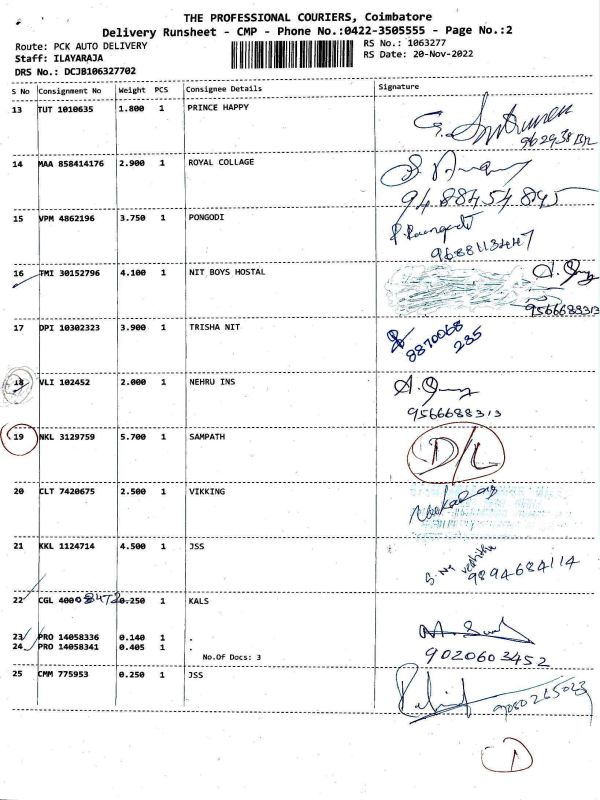 THE PROFESSIONAL COURIERS, Coimbatore
Delivery Runsheet - CMP - Phone No.:0422-3505555 - Page No.:2
Route: PCK AUTO DELIVERY
RS No.: 1063277
Staff: ILAYARAJA
RS Date: 20-Nov-2022
DRS No.: DCJB106327702
S No Consignment No Weight PCS Consignee Details Signature
13 TUT 1010635 1.800 1 PRINCE HAPPY
14 MAA 858414176 2.900 1 ROYAL COLLAGE
9488454845
15 VPM 4862196 3.750 1 PONGODI
9688113447
16 TMI 30152796 4.100 1 NIT BOYS HOSTAL
9566688313
17 DPI 10302323 3.900 1 TRISHA NIT
8870068
285
18 VLI 102452 2.000 1 NEHRU INS
9566688313
19 NKL 3129759 5.700 1 SAMPATH D/L
20 CLT 7420675 2.500 1 VIKKING
21 KKL 1124714 4.500 1 JSS
9894684114
22 CGL 0.250 1 KALS
23 PRO 14058336 0.140 1 .
24 PRO 14058341 0.405 1 .
No.Of Docs: 3
9020603452
25 CMM 775953 0.250 1 JSS